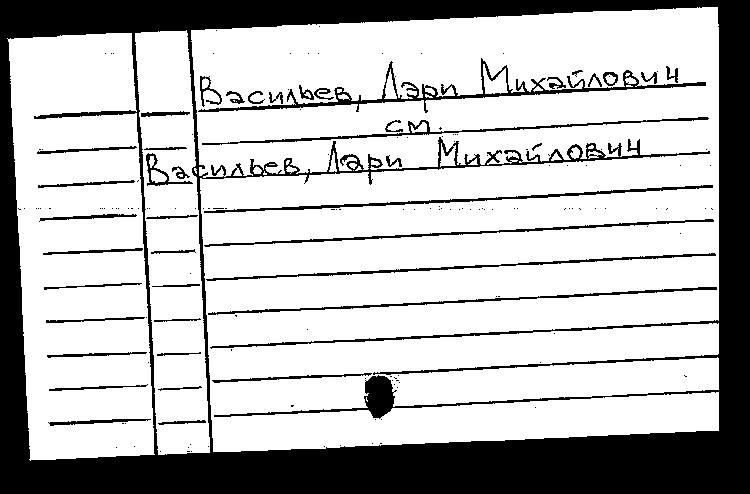 Васильев, Лэри Михайлович
см.
Васильев, Лари Михайлович